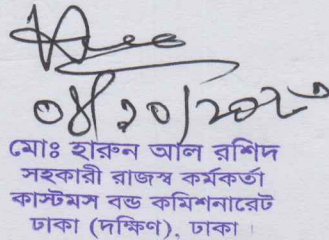 ০৪/১০/২০২৩
মোঃ হারুন আল রশিদ
সহকারী রাজস্ব কর্মকর্তা
কাস্টমস বন্ড কমিশনারেট
ঢাকা (দক্ষিণ), ঢাকা।